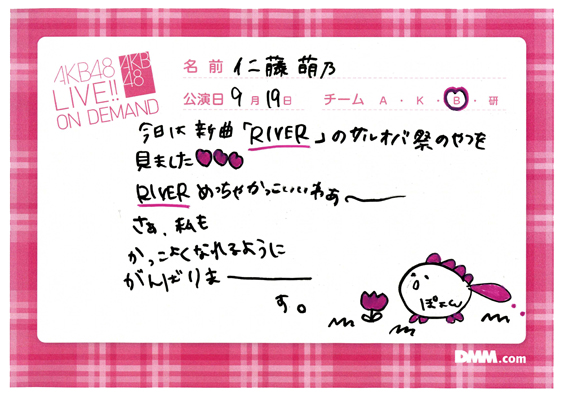 AKB48
LIVE!!
ON DEMAND
AKB
48
名前 仁藤萌乃
公演日 9月19日 チーム A・K・B・研
今日は新曲「RIVER」のサルオバ祭のやつを
見ました
RIVERめっちゃかっこいいわぁ〜
さぁ、私も
かっこよくなれるように
がんばりまー
す。
ぽょん
DMM.com